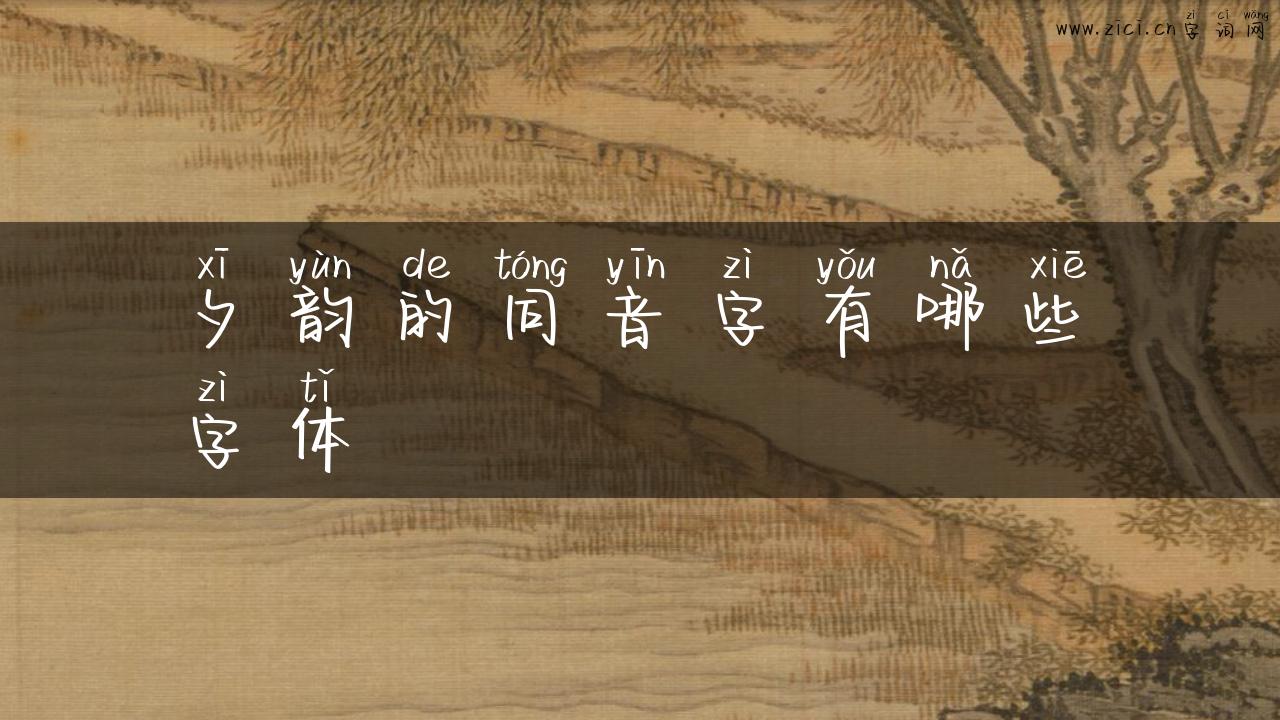 zì cí wǎng
www.zici.cn字词网
xī yùn de tóng yīn zì yǒu nǎ xiē
夕韵的同音字有哪些
zì tǐ
字体